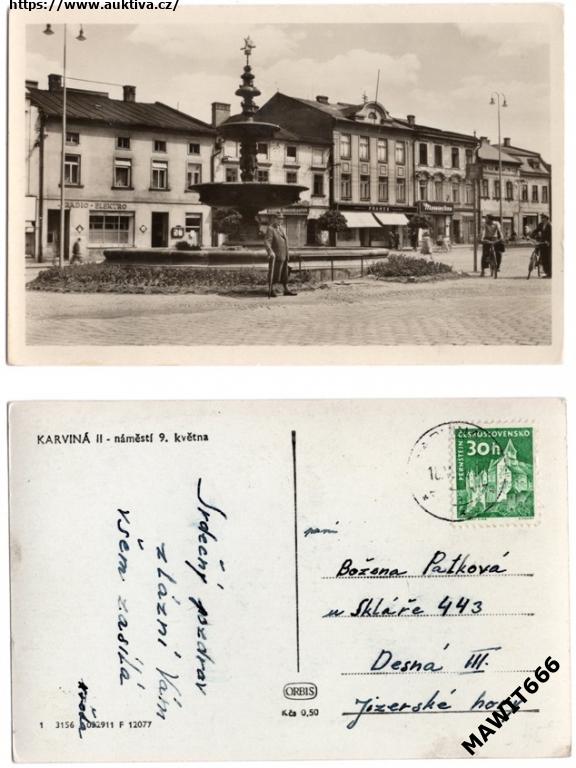 https://www.auktiva.cz/
RADIO-ELEKTRO
PRAMEN
KARVINÁ II - náměstí 9. května
ČESKOSLOVENSKO
30h
PERNŠTEJN
Srdečný pozdrav
z lázní Vám
všem zasílá
paní
Božena Patková
u Skláře 443
Desná III.
Jizerské hory
ORBIS
Kčs 0,50
1 3156 F 12077
MAWIT666